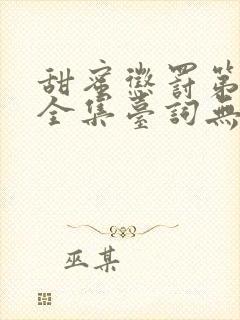 甜蜜懲罰第
全集臺詞無
巫某